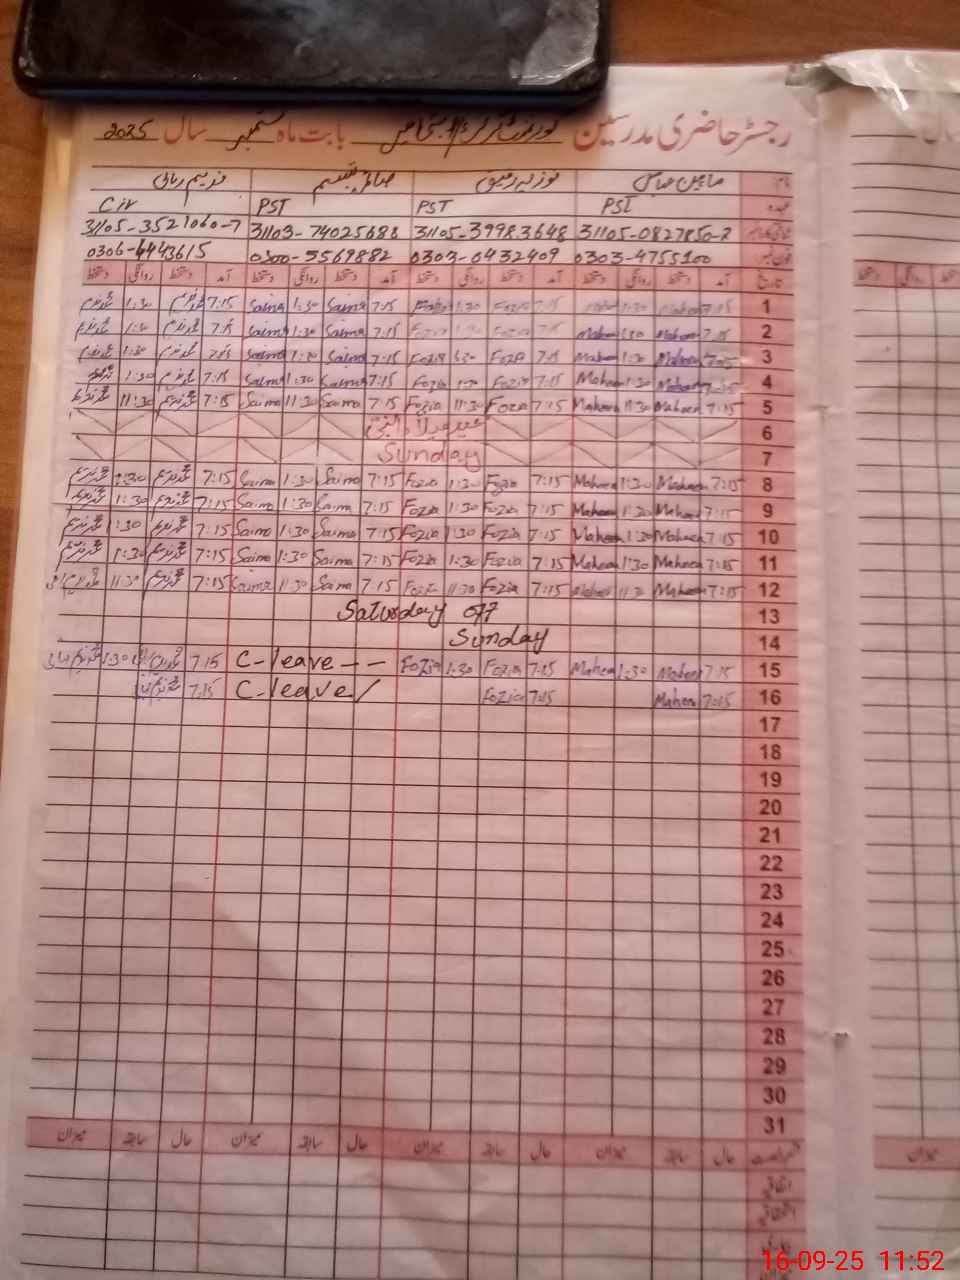 رجسٹر حاضری مدرسین بابت ماہ ستمبر سال 2025
نام ماہین صائمہ تبسم
عہدہ PST PST PST
31105-0827850-2 31105-39983648 31103-74025688 31105-3521060-7
فون نمبر 0303-4755100 0303-0432409 0300-5569882 0306-4443615
تاریخ آمد دستخط روانگی دستخط آمد دستخط روانگی دستخط آمد دستخط روانگی دستخط آمد دستخط روانگی دستخط
1 7:15 Maheen 1:30 7:15 Fozia 1:30 7:15 Saima 1:30 Saima 7:15 1:30
2 7:15 Maheen 1:30 Maheen 7:15 Saima 1:30 Saima 7:15 1:30
3 7:15 Maheen 1:30 Maheen 7:15 Fozia 1:30 Fozia 7:15 Saima 1:30 Saima 7:15 1:30
4 7:15 Maheen 1:30 Maheen 7:15 Fozia 1:30 Fozia 7:15 Saima 1:30 Saima 7:15 1:30
5 7:15 Maheen 11:30 Maheen 7:15 Fozia 11:30 Fozia 7:15 Saima 11:30 Saima 7:15 11:30
6 عید میلاد النبی
7 Sunday
8 7:15 Maheen 1:30 Maheen 7:15 Fozia 1:30 Fozia 7:15 Saima 1:30 Saima 7:15 1:30
9 7:15 Maheen 1:30 Maheen 7:15 Fozia 1:30 Fozia 7:15 Saima 1:30 Saima 7:15 1:30
10 7:15 Maheen 1:30 Maheen 7:15 Fozia 1:30 Fozia 7:15 Saima 1:30 Saima 7:15 1:30
11 7:15 Maheen 1:30 Maheen 7:15 Fozia 1:30 Fozia 7:15 Saima 1:30 Saima 7:15 1:30
12 7:15 Maheen 11:30 Maheen 7:15 Fozia 11:30 Fozia 7:15 Saima 11:30 Saima 7:15 11:30
13 Saturday off
14 Sunday
15 7:15 Maheen 1:30 Maheen 7:15 Fozia 1:30 Fozia C-leave-- 7:15 1:30
16 7:15 Maheen 7:15 Fozia C-leave/ 7:15
17
18
19
20
21
22
23
24
25
26
27
28
29
30
31
حال سابقہ میزان حال سابقہ میزان حال سابقہ میزان حال سابقہ میزان
اتفاقیہ
16-09-25 11:52